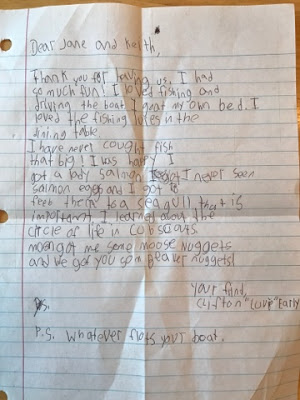 Dear Jane and Keith,
Thank you for having us. I had
so much fun! I loved fishing and
driving the boat I geat my own bed. I
loved the fishing lures in the
dining table.
I have never cought fish
that big! I was happy I
got a lady salmon I never seen
salmon eggs and I got to
feed them to a seagull, that is
important. I learned about the
circle of life in cubscouts.
mom got me some moose nuggets
and we got you som beaver nuggets!
Your frind,
Clifton "Early
P.S. Whatever flots your boat.